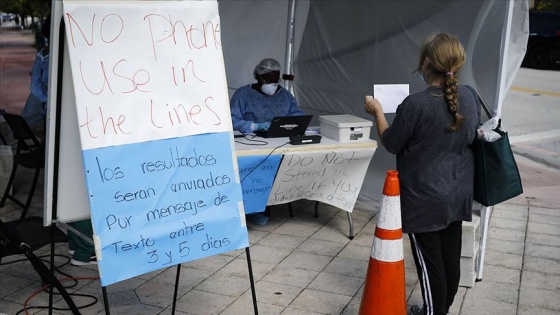 NO Phone
Use in
the Lines
los resultados
seran anviados
Por mensaje de
Texto entre
3 y 5 dias
Do Not
Stand in
Line if you